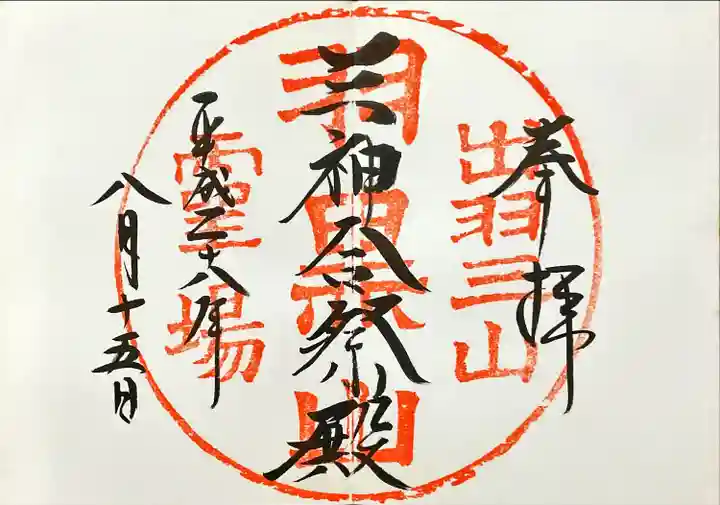 奉拝
出羽三山
三神合祭殿
羽黒山
霊場
平成二十八年
八月十五日